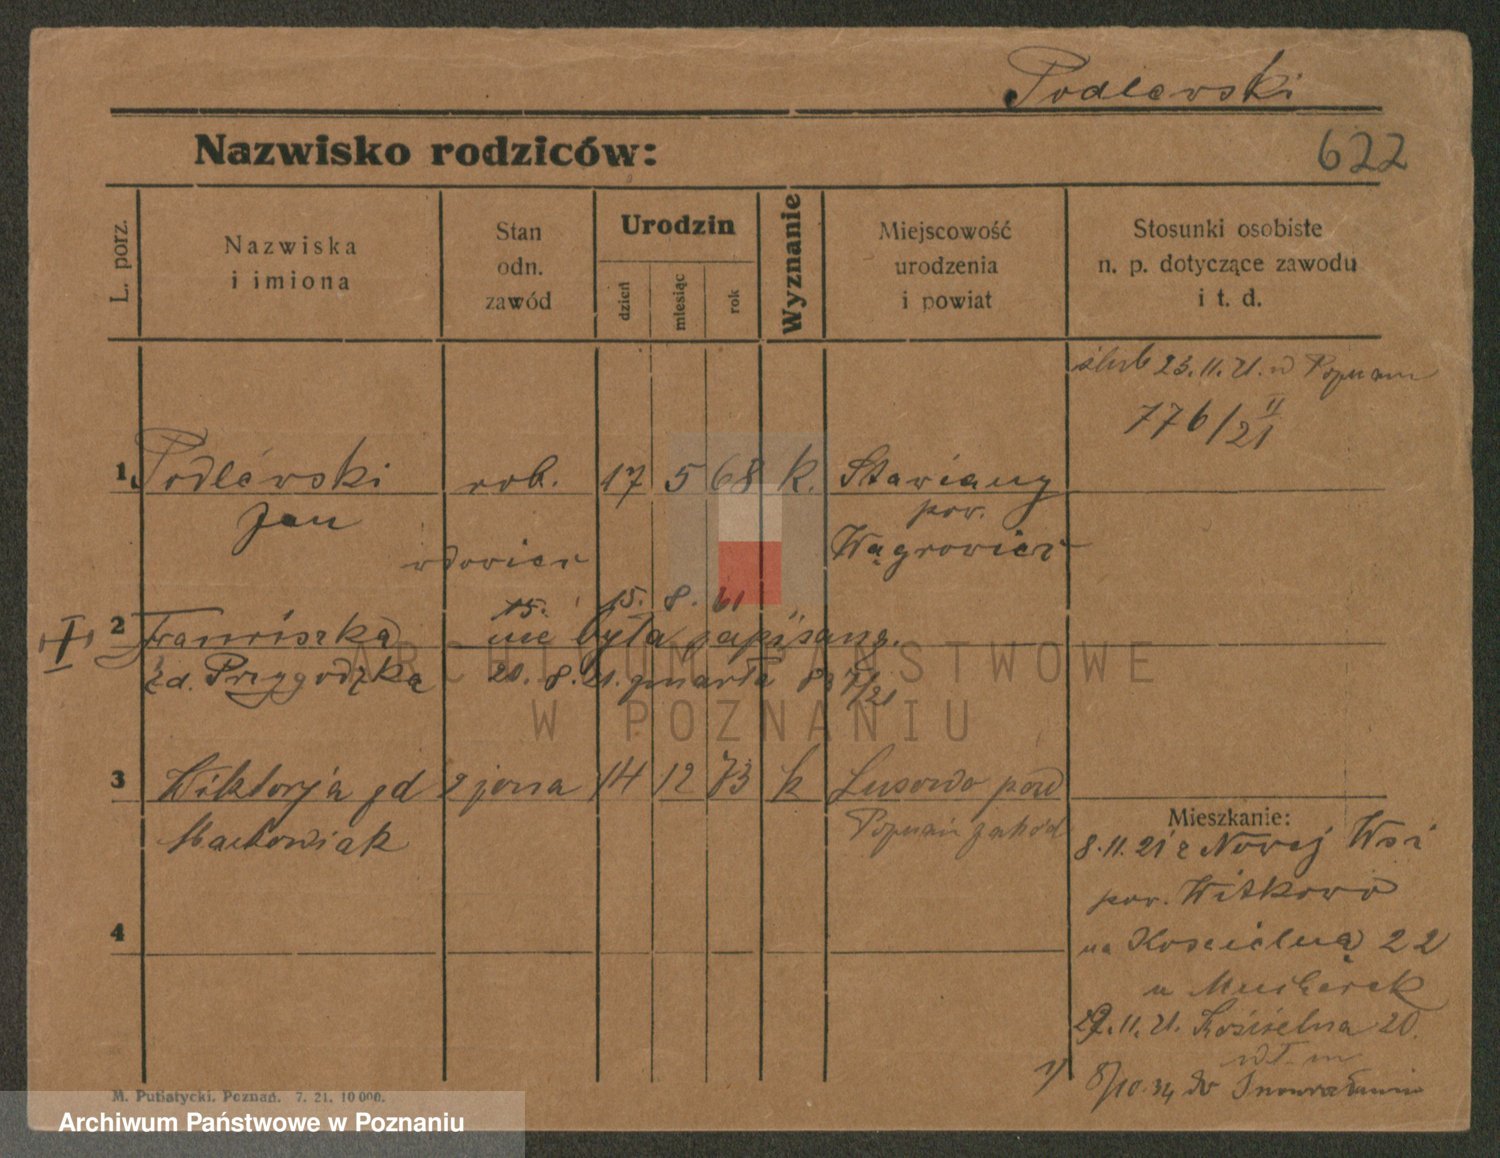 Podlewski
Nazwisko rodziców:
622
L. porz.
Nazwiska
i imiona
Stan
odn.
zawód
Urodzin
dzień
miesiąc
rok
Wyznanie
Miejscowość
urodzenia
i powiat
Stosunki osobiste
n. p. dotyczące zawodu
i t. d.
ślub 23.11.21. w Poznaniu
776/21 11
1. Podlewski rob. 17 5 68 k. Stawiany
Jan pow.
wdowiec Wągrowiec
15. 15. 8. 61
2 Franciszka nie była zapisana.
zd. Przygodzka 20. 8. 21. zmarła
3 Wiktorja zd 2 żona 14 12 73 k Lusowo pow
Maćkowiak Poznań zachód
4
Mieszkanie:
8.11.21 z Nowej Wsi
pow. Witkowo
na Kościelną 22
u
29.11.21. Kościelna 20.
8/10.34 do Inowrocławia
M. Putiatycki, Poznań. 7. 21. 10000.
ARCHIWUM PAŃSTWOWE
W POZNANIU
Archiwum Państwowe w Poznaniu